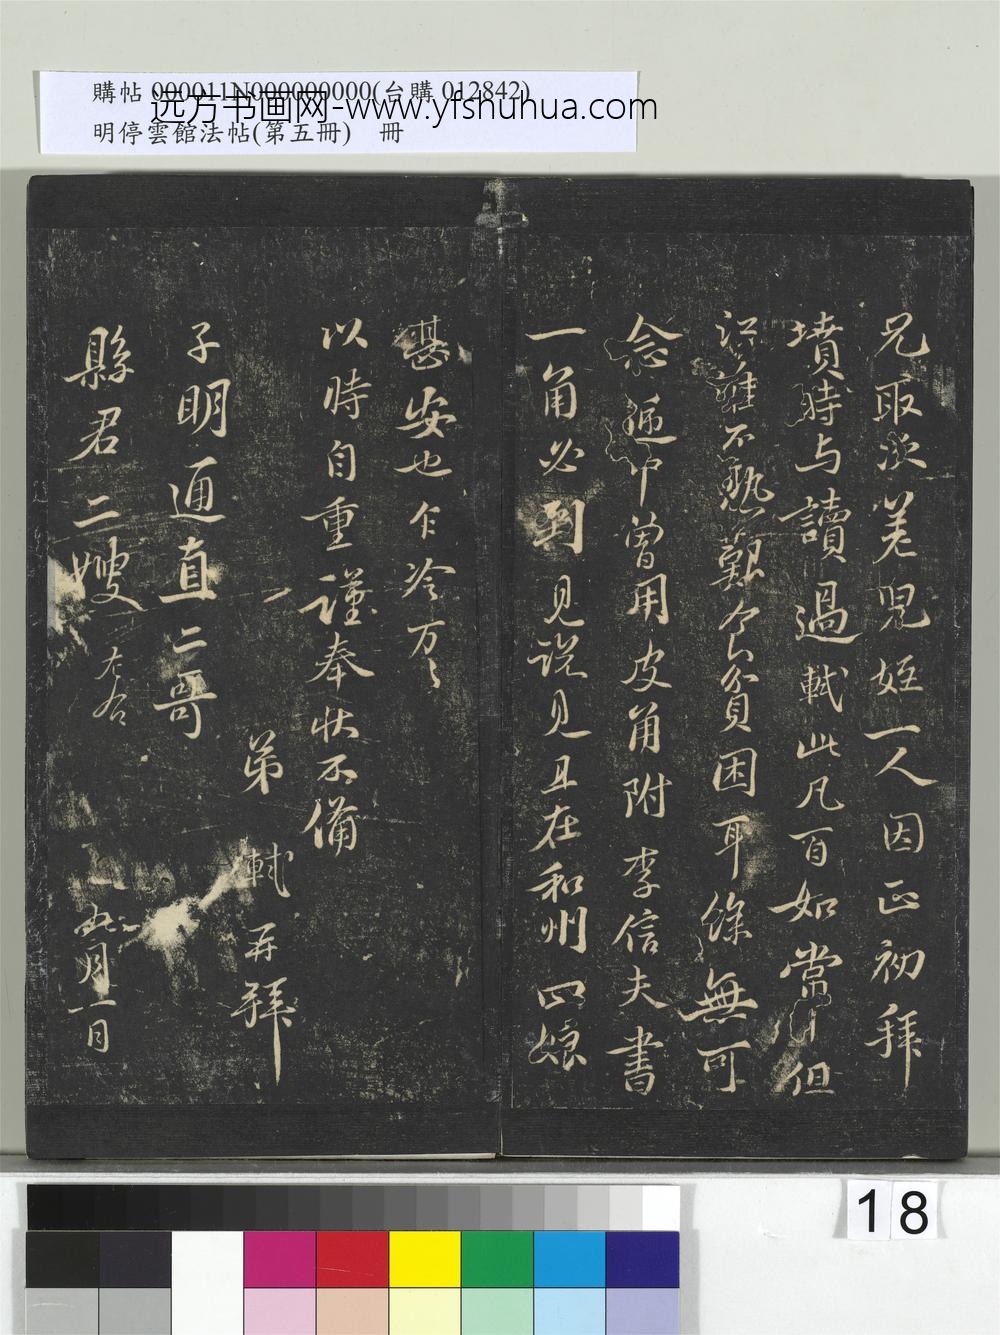 購帖 000011N000000000(台購 012842)
远方书画网-www.yfshuhua.com
明停雲館法帖(第五冊) 冊
兄取次羌兒姪一人因正初拜
墳時与讀過軾此凡百如常但
淮不熟艱食貧困耳餘無可
念遞中曾用皮角附李信夫書
一角必到見說見且在和州四娘
甚安也乍冷万〻
以時自重謹奉狀不備
弟軾再拜
子明通直二哥
縣君二嫂左右
九月一日
18